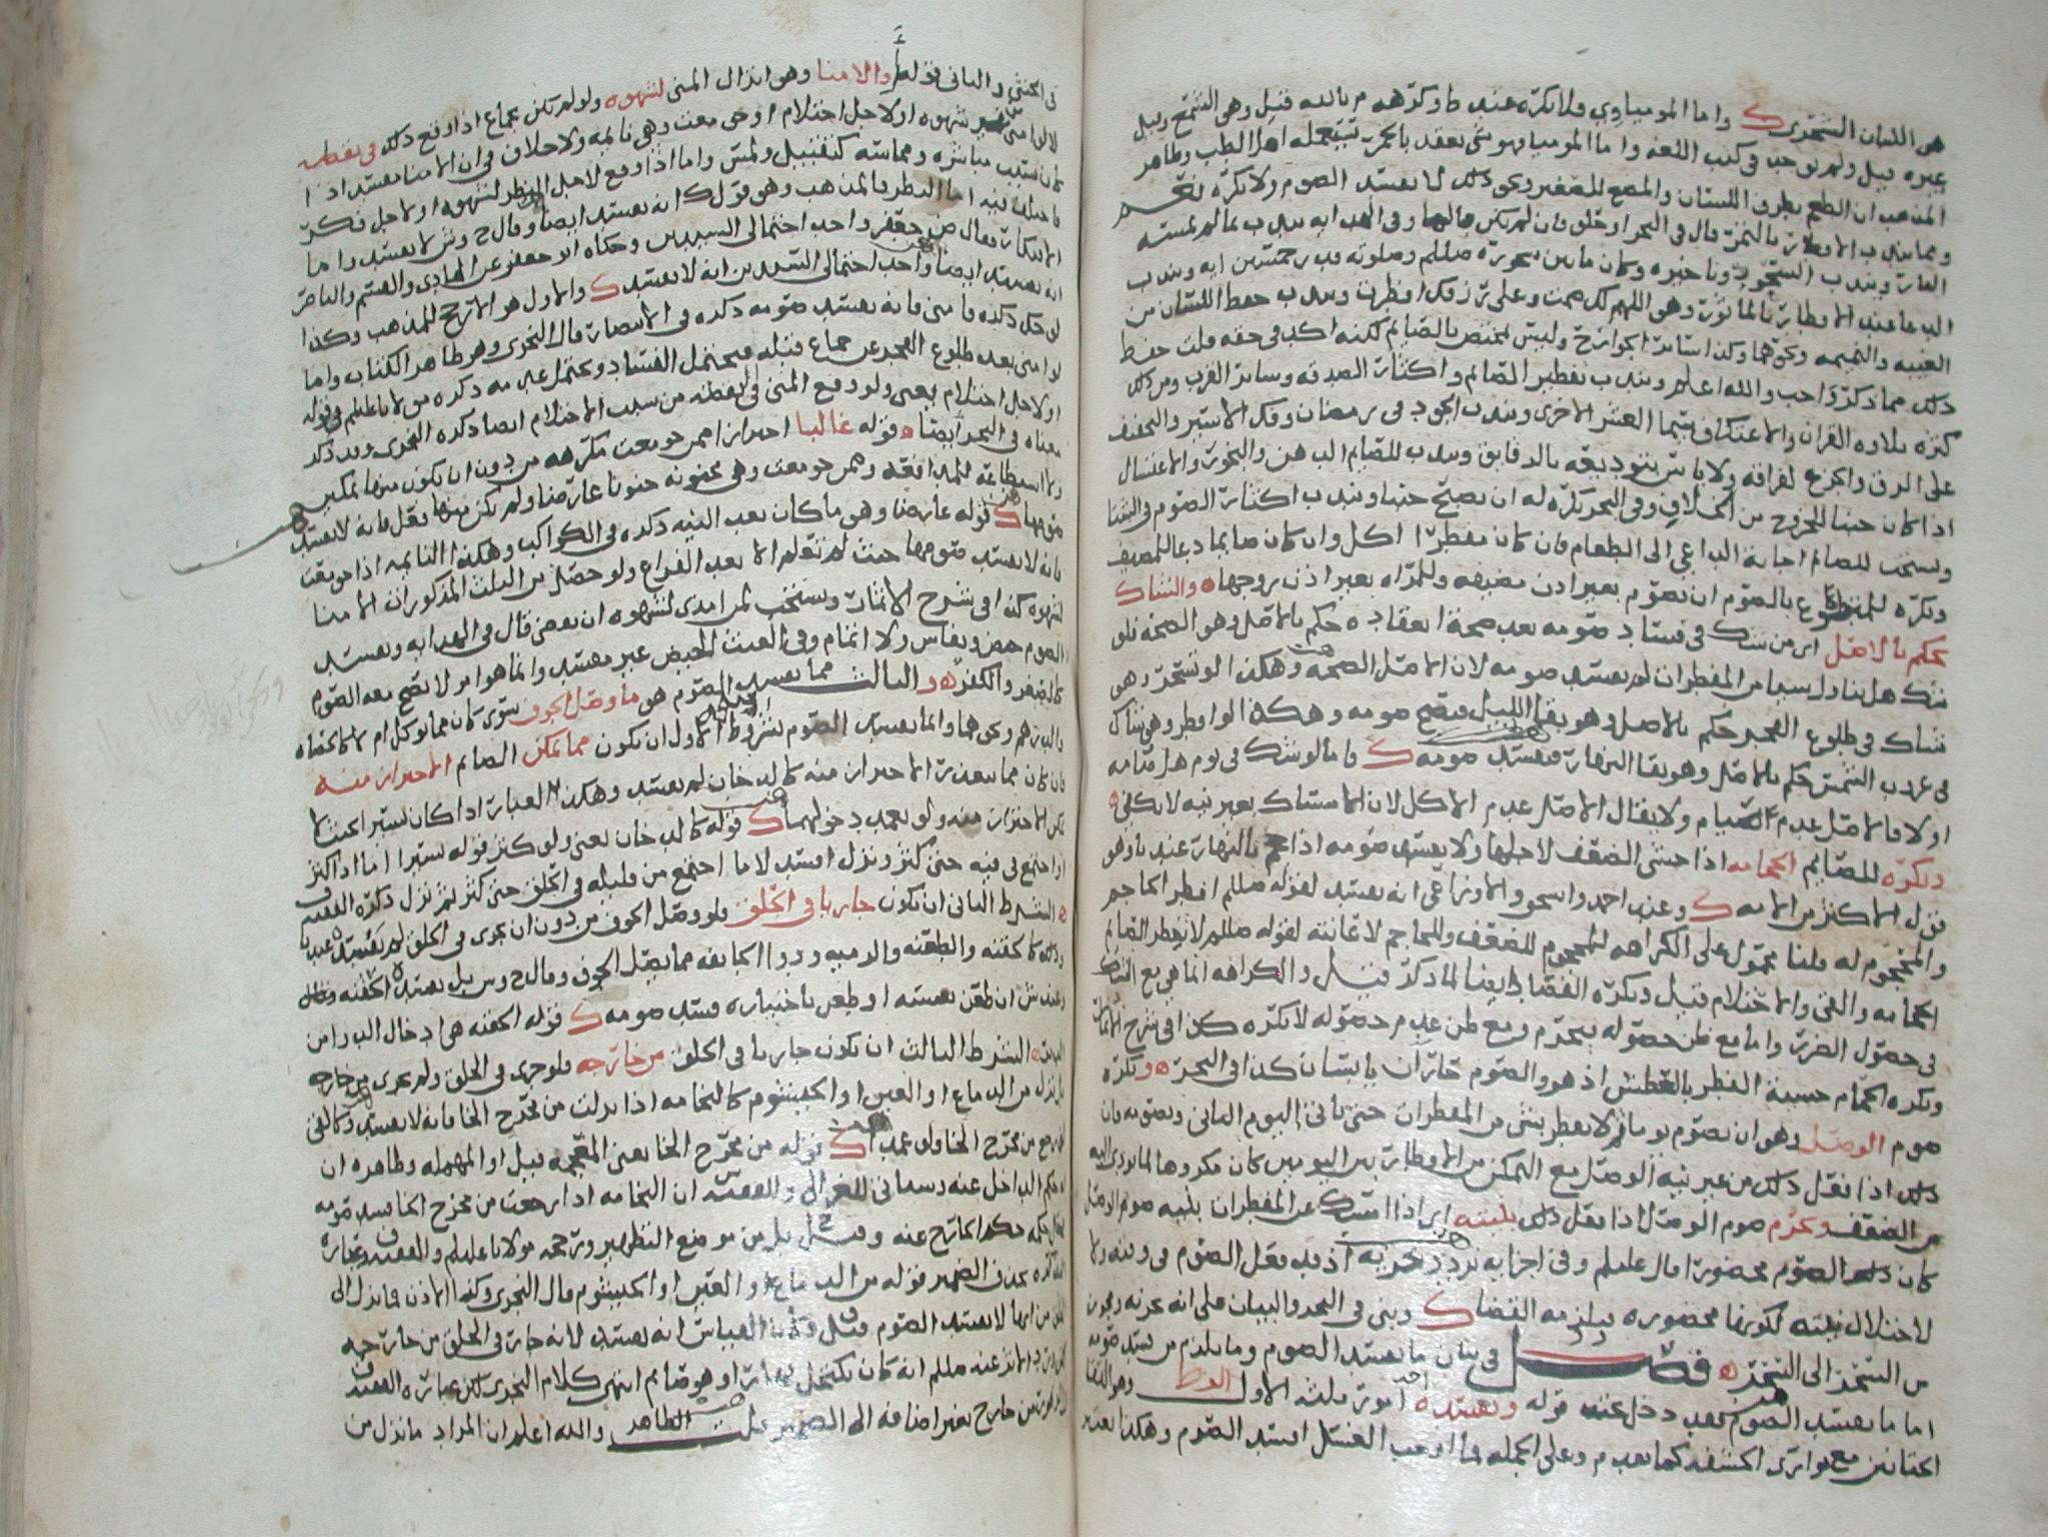 هي اللبان الشحري ك واما المومياوي فلا تكره عند ط وكرهه م بالله قيل وهي الشمع وقيل
غيره قيل ولم توجد في كتب اللغه واما الموميا فهو شي يعقد بالحجر تستعمله اهل الطب وظاهر
المذهب ان الطعم بطرف اللسان والمضغ للصغير ونحو ذلك لا يفسد الصوم ولا تكره نعم
ومما يندب الافطار بالتمر قال في البحر او حلو فان لم يكن فالما وفي الهدايه يندب بما لم تمسه
النار ويندب السحور وتاخيره وكان ما بين سحوره صلعم وصلوته قدر خمسين ايه ويندب
الدعا عند الافطار بالماثور وهو اللهم لك صمت وعلى رزقك افطرت ويندب حفظ اللسان من
الغيبه والنميمه ونحوهما وكذا سائر الجوارح وليس بمختص بالصايم لكنه اكد في حقه قلت حفظ
ذلك مما ذكر واجب والله اعلم ويندب تفطير الصائم واكثار الصدقه وسائر القرب ومن ذلك
كثره تلاوه القران والاعتكاف سيما العشر الاخرى ويندب الجود في رمضان وفك الاسير والتخفيف
على الرق والجزع لفراقه ولا باس بتوديعه بالدقايق ويندب للصايم الدهن والبخور والاغتسال
اذا كان جنبا للخروج من الخلاف وفي البحر تكره له ان يصبح جنبا ويندب اكثار الصوم في الشتا
ويستحب للصائم اجابة الداعي الى الطعام فان كان مفطرا اكل وان كان صايما دعا للمضيف
وتكره للمتطوع بالصوم ان يصوم بغير اذن مضيفه وللمراه بغير اذن زوجها ه والشاك
يحكم بالاصل اي من شك في فساد صومه بعد صحة انعقاده حكم بالاصل وهو الصحه فلو
شك هل تناول شيا من المفطرات لم يفسد صومه لان الاصل الصحه وهكذا لو تسحر وهو
شاك في طلوع الفجر حكم بالاصل وهو بقا الليل فيصح صومه وهكذا لو افطر وهو شاك
في غروب الشمس حكم بالاصل وهو بقا النهار فيفسد صومه ك فاما لو شك في يوم هل صامه
او لا فالاصل عدم الصيام ولا يقال الاصل عدم الاكل لان الامساك بغير نيه لا يكفي ه
وتكره للصايم الحجامه اذا خشي الضعف لاجلها ولا يفسد صومه اذا بالنهار عندنا وهو
قول الاكثر من الامه ك وعند احمد واسحق والاوزاعي انه يفسد لقوله صلعم افطر الحاجم
والمحجوم له قلنا محمول على الكراهه للمحجوم للضعف وللحاجم لاعانته لقوله صلعم لا يفطر الصايم
الحجامه والقي والاحتلام قيل وتكره الفصاد ايضا لما ذكر قيل والكراهه انما هي مع الشك
في حصول الضرر واما مع ظن حصوله فيحرم ومع ظن عدم حصوله لا تكره كذا في شرح الاثمار
وتكره الحمام خشية الفطر بالعطش اذ هو والصوم حاران يابسان كذا في البحر ه وتكره
صوم الوصل وهو ان يصوم يوما ثم لا يفطر بشي من المفطرات حتى ياتي اليوم الثاني ويصومه فان
ذلك اذا فعل ذلك من غير نية الوصل مع التمكن من الافطار بين اليومين كان مكروها لما يودي اليه
من الضعف ويحرم صوم الوصل اذا فعل ذلك بنيته اي اذا امسك عن المفطرات بنيه صوم الوصل
كان ذلك الصوم محضورا قال عليلم وفي اجزايه تردد يجزيه اذ قد فعل الصوم في وقته ولا
لاختلال نيته لكونها محضوره فيلزمه القضا ك وبنى في البحر والبيان على انه يجزيه ويجوز
من السحر الى السحر ه فصل في بيان ما يفسد الصوم وما يلزم من فسد صومه
اما ما يفسد الصوم فقد دخل عند قوله ويفسده احد امور ثلثه الاول الوطى وهو التقا
الختانين مع تواري الحشفه كما تقدم وعلى الجمله فما اوجب الغسل افسد الصوم وهكذا يفسد
في الخنثى والثاني قوله والامنا وهو انزال المني لشهوه ولو لم يكن بجماع اذا وقع ذلك في يقظه
لا لو امنى لغير شهوه او لاجل احتلام او جومعت وهي نايمه ولا خلاف في ان الامنا يفسد اذا
كان بسبب مباشره ومماسه كتقبيل ولمس واما اذا وقع لاجل النظر لشهوه او لاجل فكر
فاختلف فيه اما النظر فالمذهب وهو قول ك انه يفسد ايضا وقال ح وش لا يفسد واما
الافكار فقال ص جعفر واحد احتمالي السيدين وحكاه ابو جعفر عن الهادي والقسم والناصر
انه يفسد ايضا واحد احتمالي السيدين انه لا يفسد ك والاول هو الارجح للمذهب وكذا
لو حك ذكره فامنى فانه يفسد صومه ذكره في الانتصار قال النجري وهو ظاهر الكتاب واما
لو امنى بعد طلوع الفجر عن جماع قبله فيحتمل الفساد ويحتمل عدمه ذكره مولانا عليلم في قوله
او لاجل احتلام يعني ولو دفع المني في اليقظه من سبب الاحتلام ايضا ذكره النجري وقد ذكر
معناه في البحر ايضا ه قوله غالبا احتراز ا ممن جومعت مكرهه من دون ان يكون منها تمكين
ولا استطاعة للمدافعه وممن جومعت وهي مجنونه جنونا عارضا ولم يكن منها فعل فانه لا يفسد
صومها ك قوله عارضا وهو ما كان بعد النيه ذكره في الكواكب وهكذا النايمه اذا جومعت
فانه لا يفسد صومها حيث لم تعلم الا بعد الفراغ ولو حصل من الثلث المذكورات الامنا
لشهوه كذا في شرح الاثمار ويستحب لمن امذى لشهوه ان يقضي قال في الهدايه ويفسد
الصوم حيض ونفاس ولا اثمام وفي الغيث الحيض غير مفسد وانما هو امر لا يصح معه الصوم
كالصغر والكفر ه والثالث مما يفسد الصوم هو ما وصل الجوف سوى كان مما يوكل ام لا كالحصاه
والدرهم ونحوهما وانما يفسد الصوم بشروط الاول ان يكون مما يمكن الصائم الاحتراز منه
فان كان مما يتعذر الاحتراز منه كالدخان لم يفسد وهكذا الغبار اذا كان يسيرا
يمكن الاحتراز منه ولو تعمد دخولهما ك قوله كالدخان يعني ولو كثر قوله يسيرا اما اذا كثر
او اجتمع في فيه حتى كثر ونزل افسد لا ما اجتمع من قليله في الحلق حتى كثر ثم نزل ذكره الفقيه ف
ه الشرط الثاني ان يكون جاريا في الحلق فلو وصل الجوف من دون ان يجري في الحلق لم يفسد عندنا
وذلك كالحقنه والطعنه والرميه ودوا الجايفه مما يصل الجوف وقال ح وش بل يفسد الحقنه وقال
وعند ش ان طعن نفسه او طعن باختياره فسد صومه ك قوله الحقنه هي ادخال الدوا من
الدبر ه الشرط الثالث ان يكون جاريا في الحلق من خارجه فلو جرى في الحلق ولم يجري من خارجه
بل نزل من الدماغ او العين او الخيشوم كالنخامه اذا نزلت من مخرج الخا فانه لا يفسد وكالقي
اذا رجع من مخرج الخا ولو عمدا ك قوله من مخرج الخا يعني المعجمه وقيل او المهمله وظاهره ان
حكم الداخل عنه وللغزالي وللفقيه س ان النخامه اذا رجعت من مخرج الخا فسد صومه
حكمه حكم الخارج عنه وقيل بل من موضع التطهير ورجحه مولانا عليلم والفقيه ف وعباره
التذكره بحذف الضمير قوله من الدماغ او العين او الخيشوم قال النجري وكذا الاذن فما نزل الى
الحلق من ايها لا يفسد الصوم قيل ولابي العباس انه يفسد لانه جار في الحلق من خارجه
لكن ورد الاثر عنه صلعم انه كان يكتحل نهارا وهو صايم انتهى كلام النجري لكن عباره الفقيه ف
من خارج بغير اضافه الى الضمير قيل الظاهر والله اعلم ان المراد ما نزل من